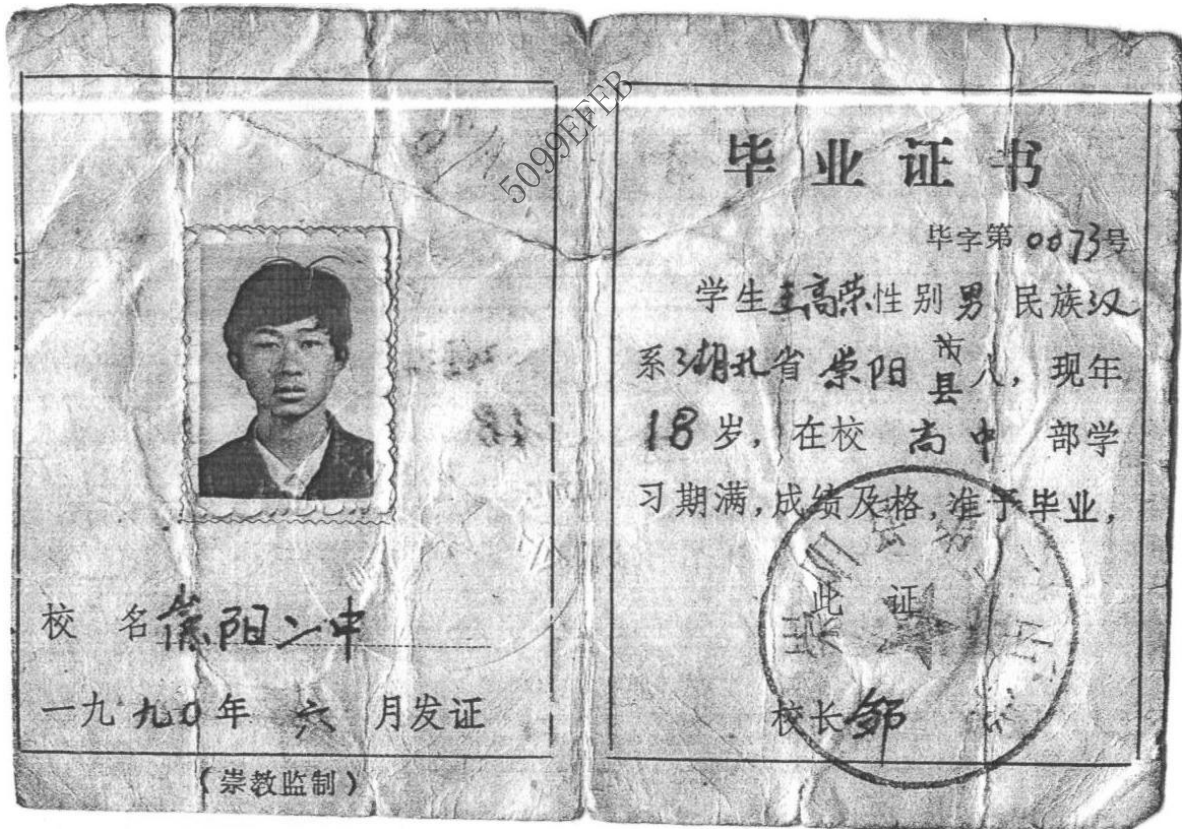 5099EFEB
校 名 崇阳二中
一九九0年 六 月发证
(崇教监制)
毕业证书
毕字第0073号
学生王高荣性别男民族汉
系湖北省 崇阳 市县人,现年
18岁,在校 高中 部学
习期满,成绩及格,准于毕业,
此证
校长邹